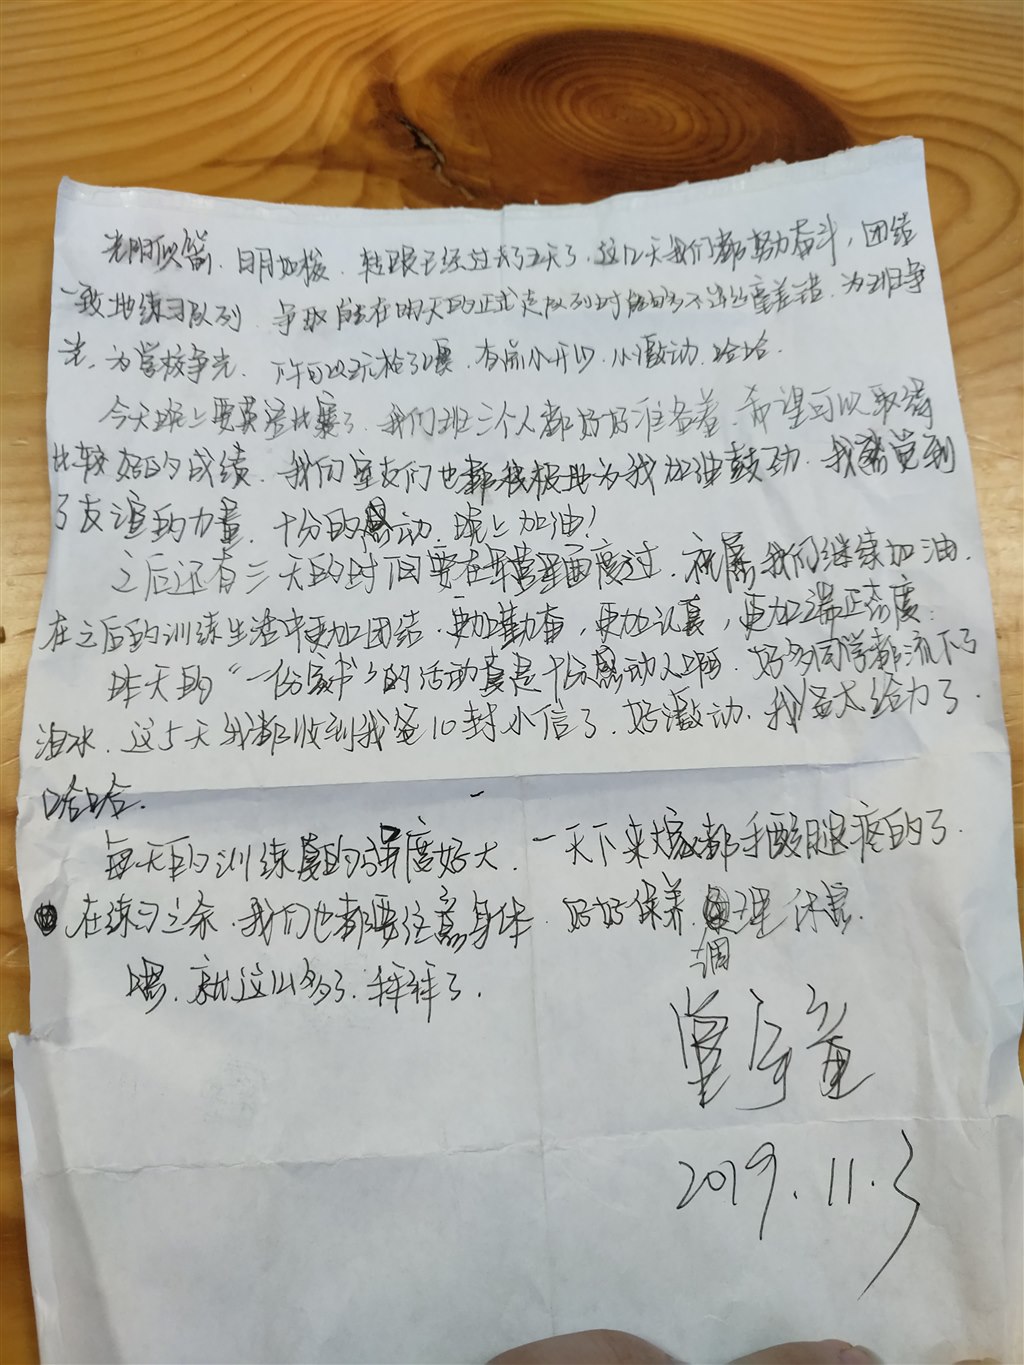 光阴似箭，日月如梭，转眼已经过去了五天了，这几天我们都努力奋斗，团结
一致地练习队列，争取在明天的正式走队列时能够不该出差错，为班争
光，为学校争光，下午可以玩枪了嘿，有点小开心，小激动，哈哈。
今天晚上要英语比赛了，我们班三个人都好好准备着，希望可以取得
比较好的成绩，我们室友们也都积极地为我加油鼓劲，我感觉到
了友谊的力量，十分的感动，晚上加油！
之后还有三天的时间要在军营里面度过，祝愿我们继续加油，
在之后的训练生活中更加团结，更加勤奋，更加认真，更加端正态度。
昨天的“一份家书”的活动真是十分感动人啊，好多同学都流下了
泪水，这5天我都收到我爸10封小信了，好激动，我爸太给力了，
哈哈。
每天的训练真的强度好大，一天下来大家都手酸腿疼的了，
在练习之余，我们也都要注意身体，好好保养，调理休息
嗯，就这么多了，拜拜了。
2019.11.3